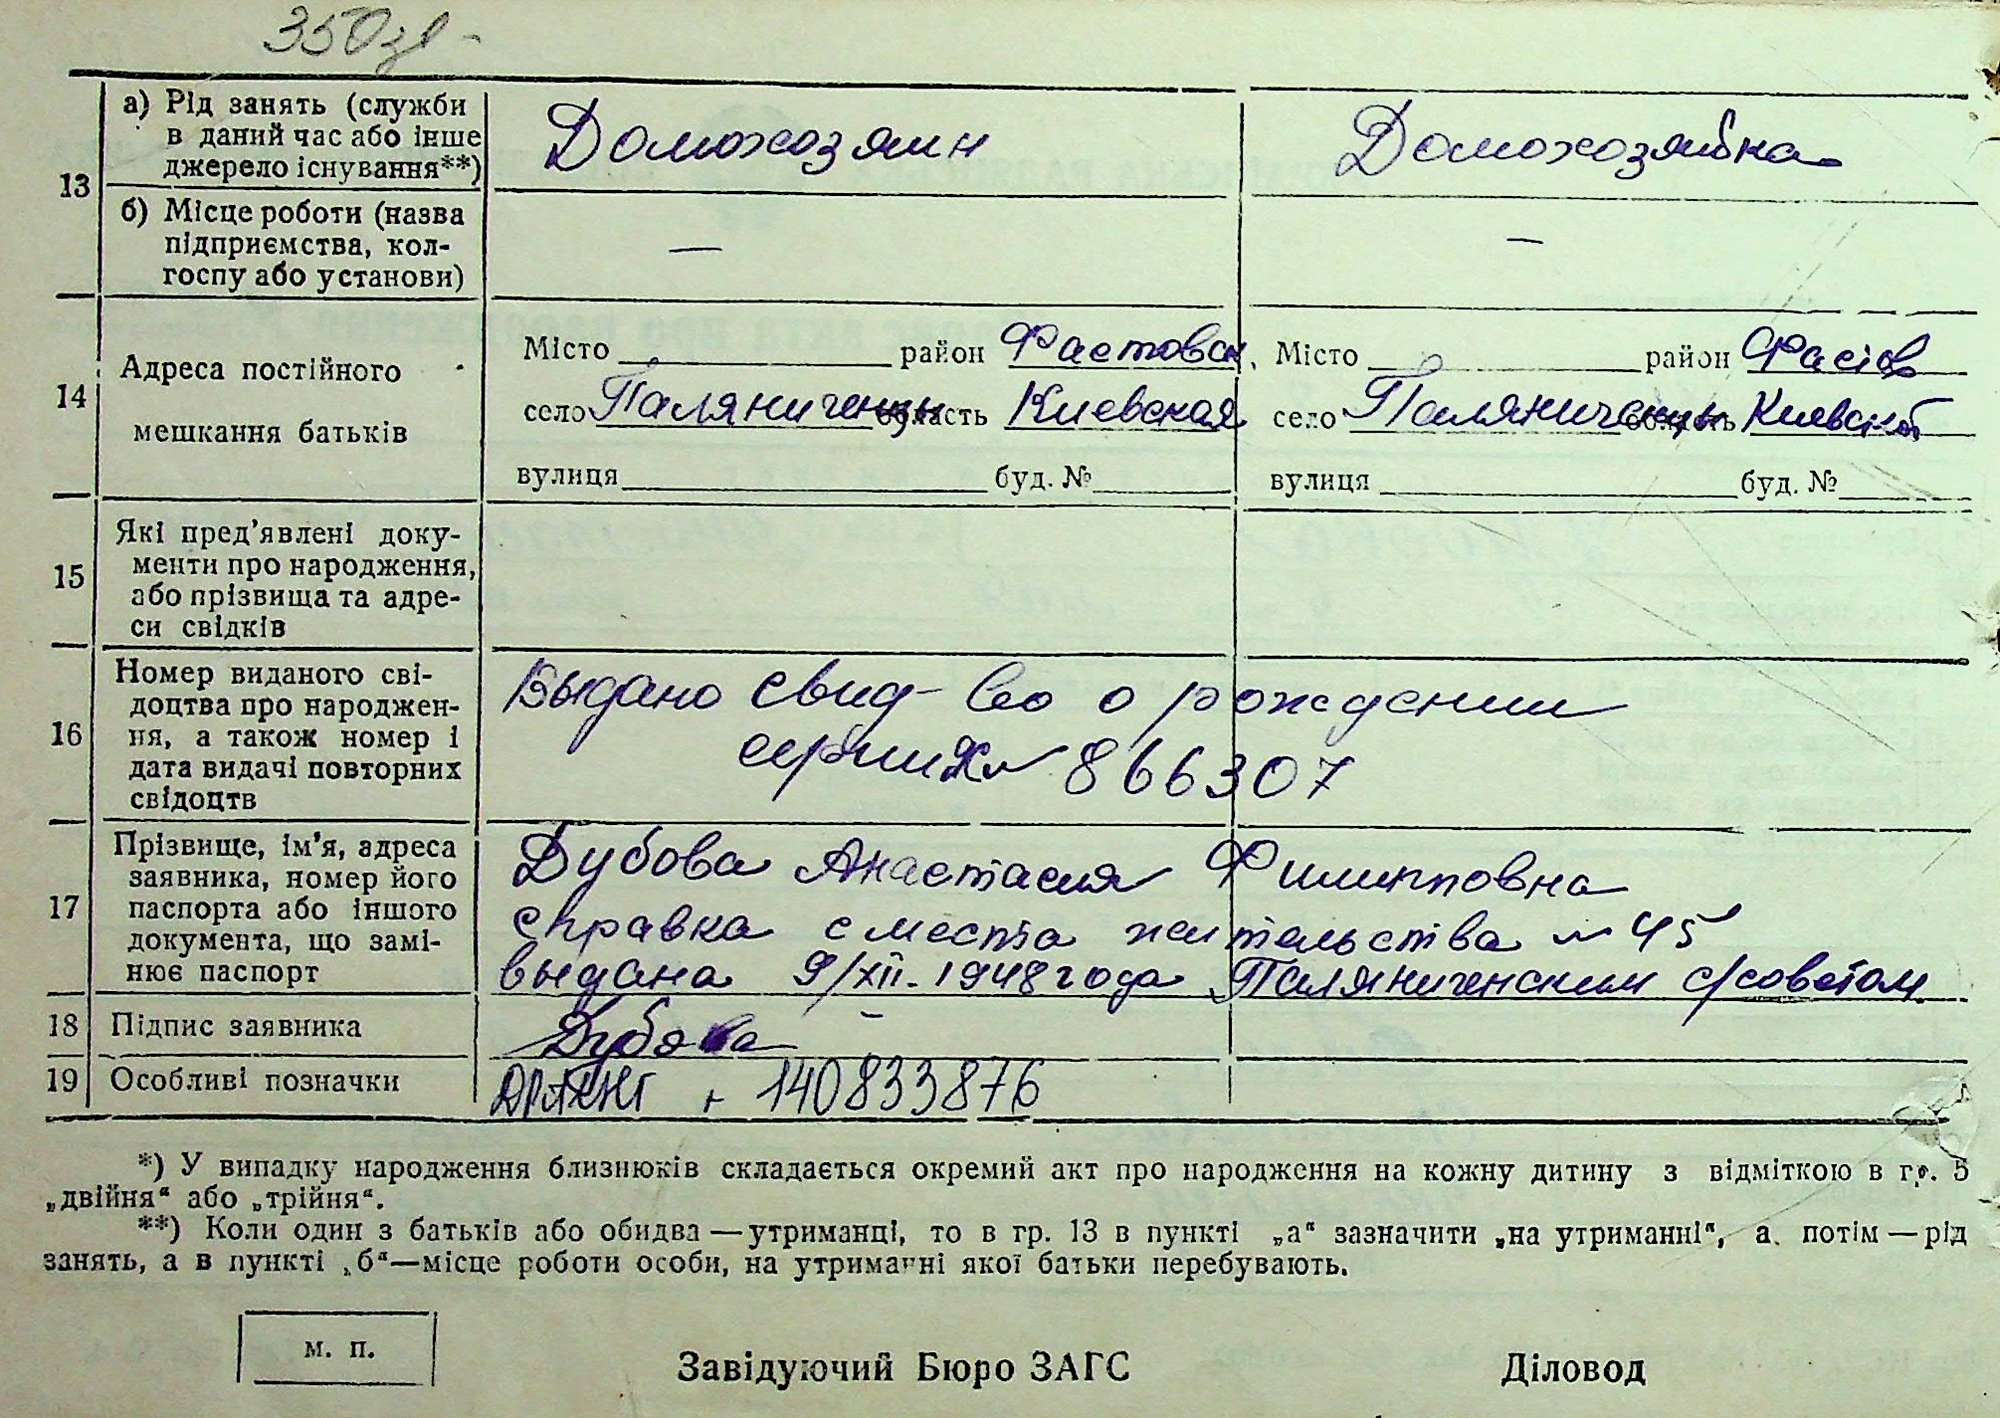 350зв -
13
а) Рід занять (служби
в даний час або інше
джерело існування**)
Домохозяин
Домохозяйка
б) Місце роботи (назва
підприємства, кол-
госпу або установи)
—
—
14
Адреса постійного
мешкання батьків
Місто район Фастовск.
село Паляниченцы область Киевская
вулиця буд. №
Місто район Фастов
село Паляниченцы область Киевской
вулиця буд. №
15
Які пред'явлені доку-
менти про народження,
або прізвища та адре-
си свідків
16
Номер виданого сві-
доцтва про народжен-
ня, а також номер і
дата видачі повторних
свідоцтв
Выдано свид-во о рождении
серии № 866307
17
Прізвище, ім'я, адреса
заявника, номер його
паспорта або іншого
документа, що замі-
нює паспорт
Дубова Анастасия Филипповна
справка с места жительства № 45
выдана 9/XII. 1948 года Паляниченским с/советом
18
Підпис заявника
Дубова
19
Особливі позначки
140833876
*) У випадку народження близнюків складається окремий акт про народження на кожну дитину з відміткою в гр. 5
„двійня“ або „трійня“.
**) Коли один з батьків або обидва — утриманці, то в гр. 13 в пункті „а“ зазначити „на утриманні“, а потім — рід
занять, а в пункті „б“—місце роботи особи, на утриманні якої батьки перебувають.
м. п.
Завідуючий Бюро ЗАГС
Діловод